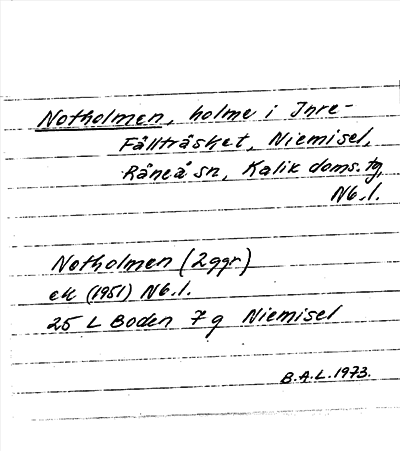 Notholmen, holme i Inre-
Fällträsket, Niemisel,
Råneå sn, Kalix doms. tg,
Nb. l.
Notholmen (2ggr)
ek (1951) Nb. l.
25 L Boden 7g Niemisel
B.A.L. 1973.